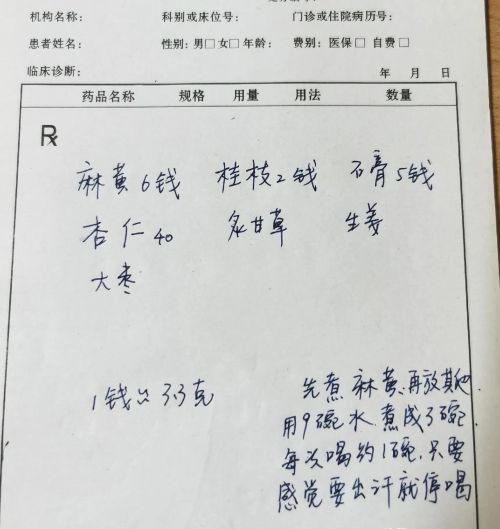 机构名称: 科别或床位号: 门诊或住院病历号:
患者姓名: 性别: 男□ 女□ 年龄: 费别: 医保□ 自费□
临床诊断: 年 月 日
药品名称 规格 用量 用法 数量
R
麻黄6钱 桂枝2钱 石膏5钱
杏仁40 炙甘草 生姜
大枣
1钱≈3.3克
先煮麻黄,再放其他
用9碗水,煮成3碗
每次喝约1碗,只要
感觉要出汗就停喝